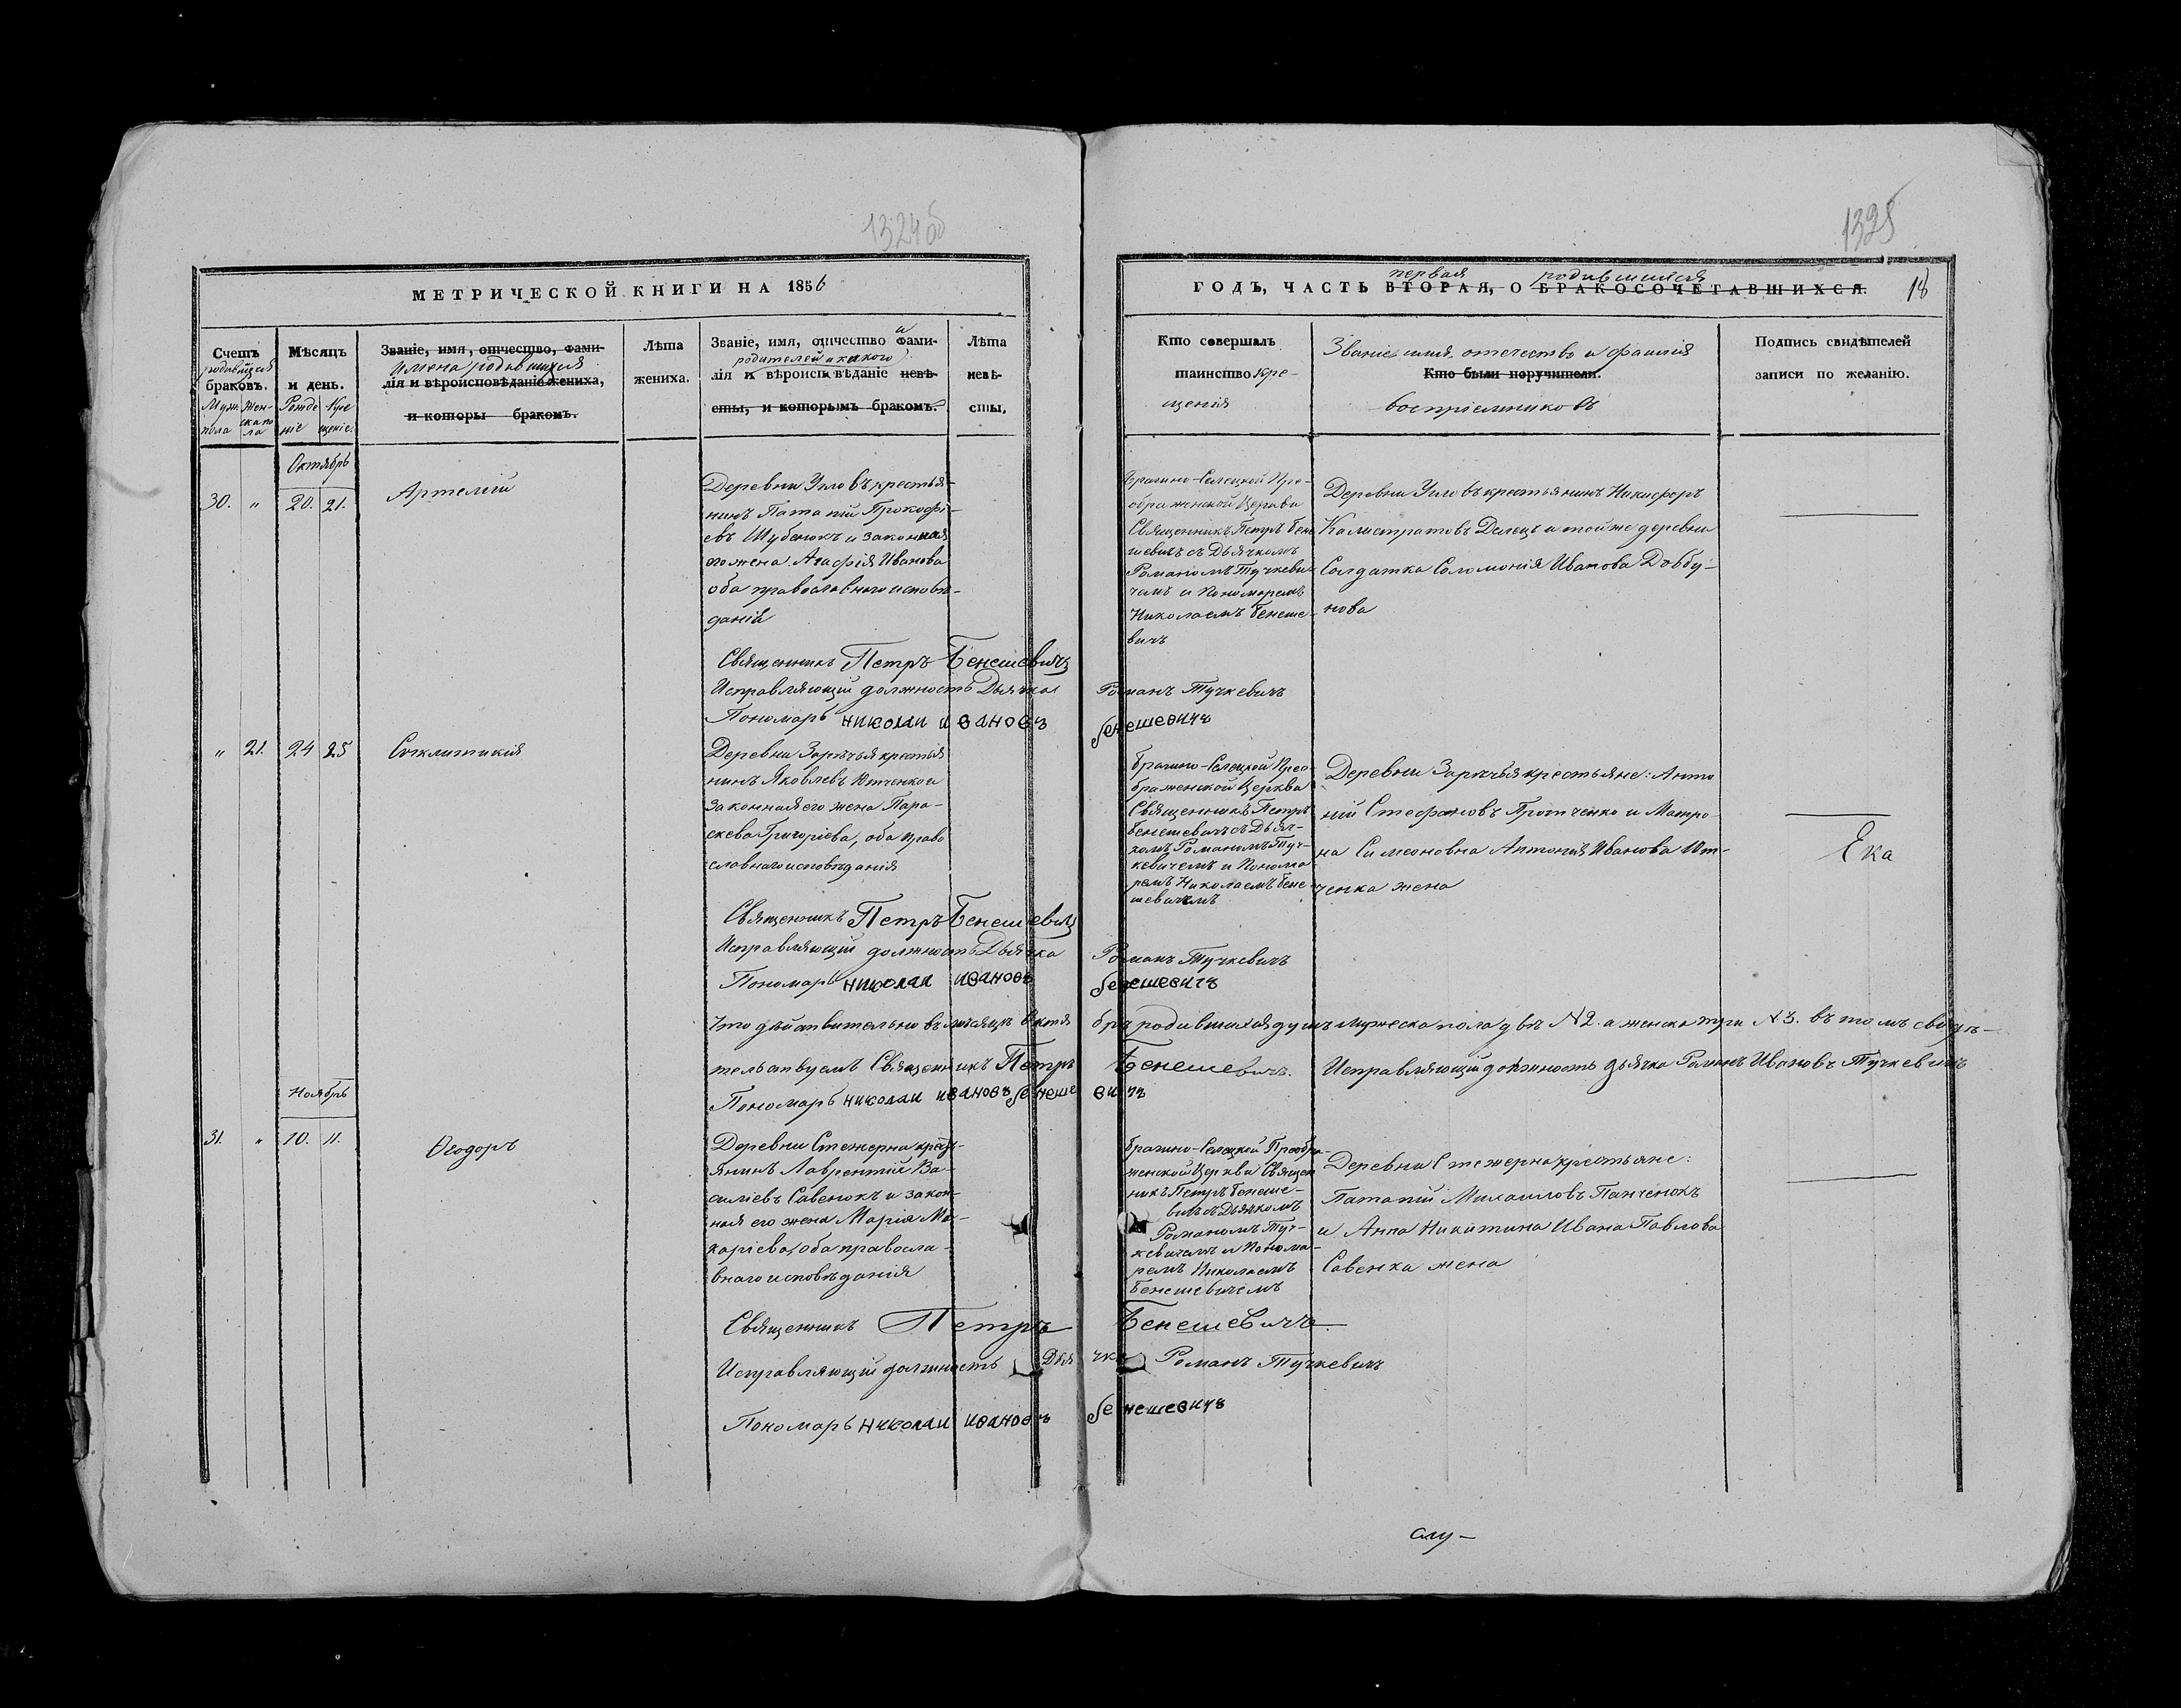 1324об
1325
МЕТРИЧЕСКОЙ КНИГИ НА 1856
ГОДЪ, ЧАСТЬ ВТОРАЯ, О БРАКОСОЧЕТАВШИХСЯ.
первая родившихся
18
Счетъ
родившихся
браковъ.
Муж. Жен-
пола ска по
ла
Мѣсяцъ
и день.
Рожде Кре
ніе щеніе.
Званіе, имя, отчество, фами-
Имена родившихся
лія и вѣроисповѣданіе жениха,
и которы бракомъ.
Лѣта
жениха.
Званіе, имя, отчество и фами-
родителей и какого
лія и вѣроисповѣданіе невѣ-
сты, и которымъ бракомъ.
Лѣта
невѣ-
сты.
Кто совершалъ
таинство кре-
щенія
Званіе имя, отечество и фамилія
Кто были поручители.
воспріемниковъ
Подпись свидѣтелей
записи по желанію.
Октябрь
30. " 20. 21.
Артемій
Деревни Угловъ крестья-
нинъ Патапій Прокофі-
евъ Шубенокъ и законная
его жена Агафія Иванова
оба православнаго исповѣ-
данія
Брагино-Селецкой Пре-
ображенской Церкви
Священникъ Петръ Бене
шевичъ съ Дьячкомъ
Романомъ Тучкеви
чемъ и Пономаремъ
Николаемъ Бенеше-
вичъ
Деревни Угловъ крестьянинъ Никифоръ
Калистратовъ Делецъ и той же деревни
Солдатка Соломонія Иванова Довбу-
нова
Священникъ Петръ Бенешевичъ
Исправляющій должность Дьячка Романъ Тучкевичъ
Пономарь николаи ивановъ бенешевичъ
" 21. 24 25
Синклитикія
Деревни Зарѣчья крестья
нинъ Яковлевъ Ютченко и
законная его жена Пара-
скева Григоріева, оба право
славнаго исповѣданія
Брагино-Селецкой Прео-
браженской Церкви
Священникъ Петръ
Бенешевичъ съ Дьяч-
комъ Романомъ Туч-
кевичемъ и Понома
ремъ Николаемъ Бене
шевичемъ
Деревни Зарѣчья крестьяне: Анто
ній Стефановъ Протченко и Матро-
на Симеоновна Антонія Иванова Ют-
ченка жена
Ека
Священникъ Петръ Бенешевичъ
Исправляющій должность Дьячка Романъ Тучкевичъ
Пономарь николаи ивановъ бенешевичъ
Что дѣйствительно въ мѣсяцѣ Октябрѣ родившихся душъ мужеска пола двѣ №2. а женска три №3. въ томъ свидѣ-
тельствуемъ Священникъ Петръ Бенешевичъ. Исправляющій должность дьячка Романъ Ивановъ Тучкевичъ
Пономарь николаи ивановъ бенешевичъ
Ноябрь
31. " 10. 11.
Ѳеодоръ
Деревни Стежерна крест-
янинъ Лаврентій Ва-
силіевъ Савенокъ и закон-
ная его жена Марія Ма-
каріева, оба правосла-
внаго исповѣданія
Брагино-Селецкой Преобра-
женской Церкви Священ
никъ Петръ Бенеше-
вичъ съ Дьячкомъ
Романомъ Туч-
кевичемъ и Понома-
ремъ Николаемъ
Бенешевичемъ
Деревни Стежерна крестьяне:
Патапій Михаиловъ Панченокъ
и Анна Никитина Ивана Павлова
Савенка жена
Священникъ Петръ Бенешевичъ
Исправляющій должность Дьячка Романъ Тучкевичъ
Пономарь николаи ивановъ бенешевичъ
слу-